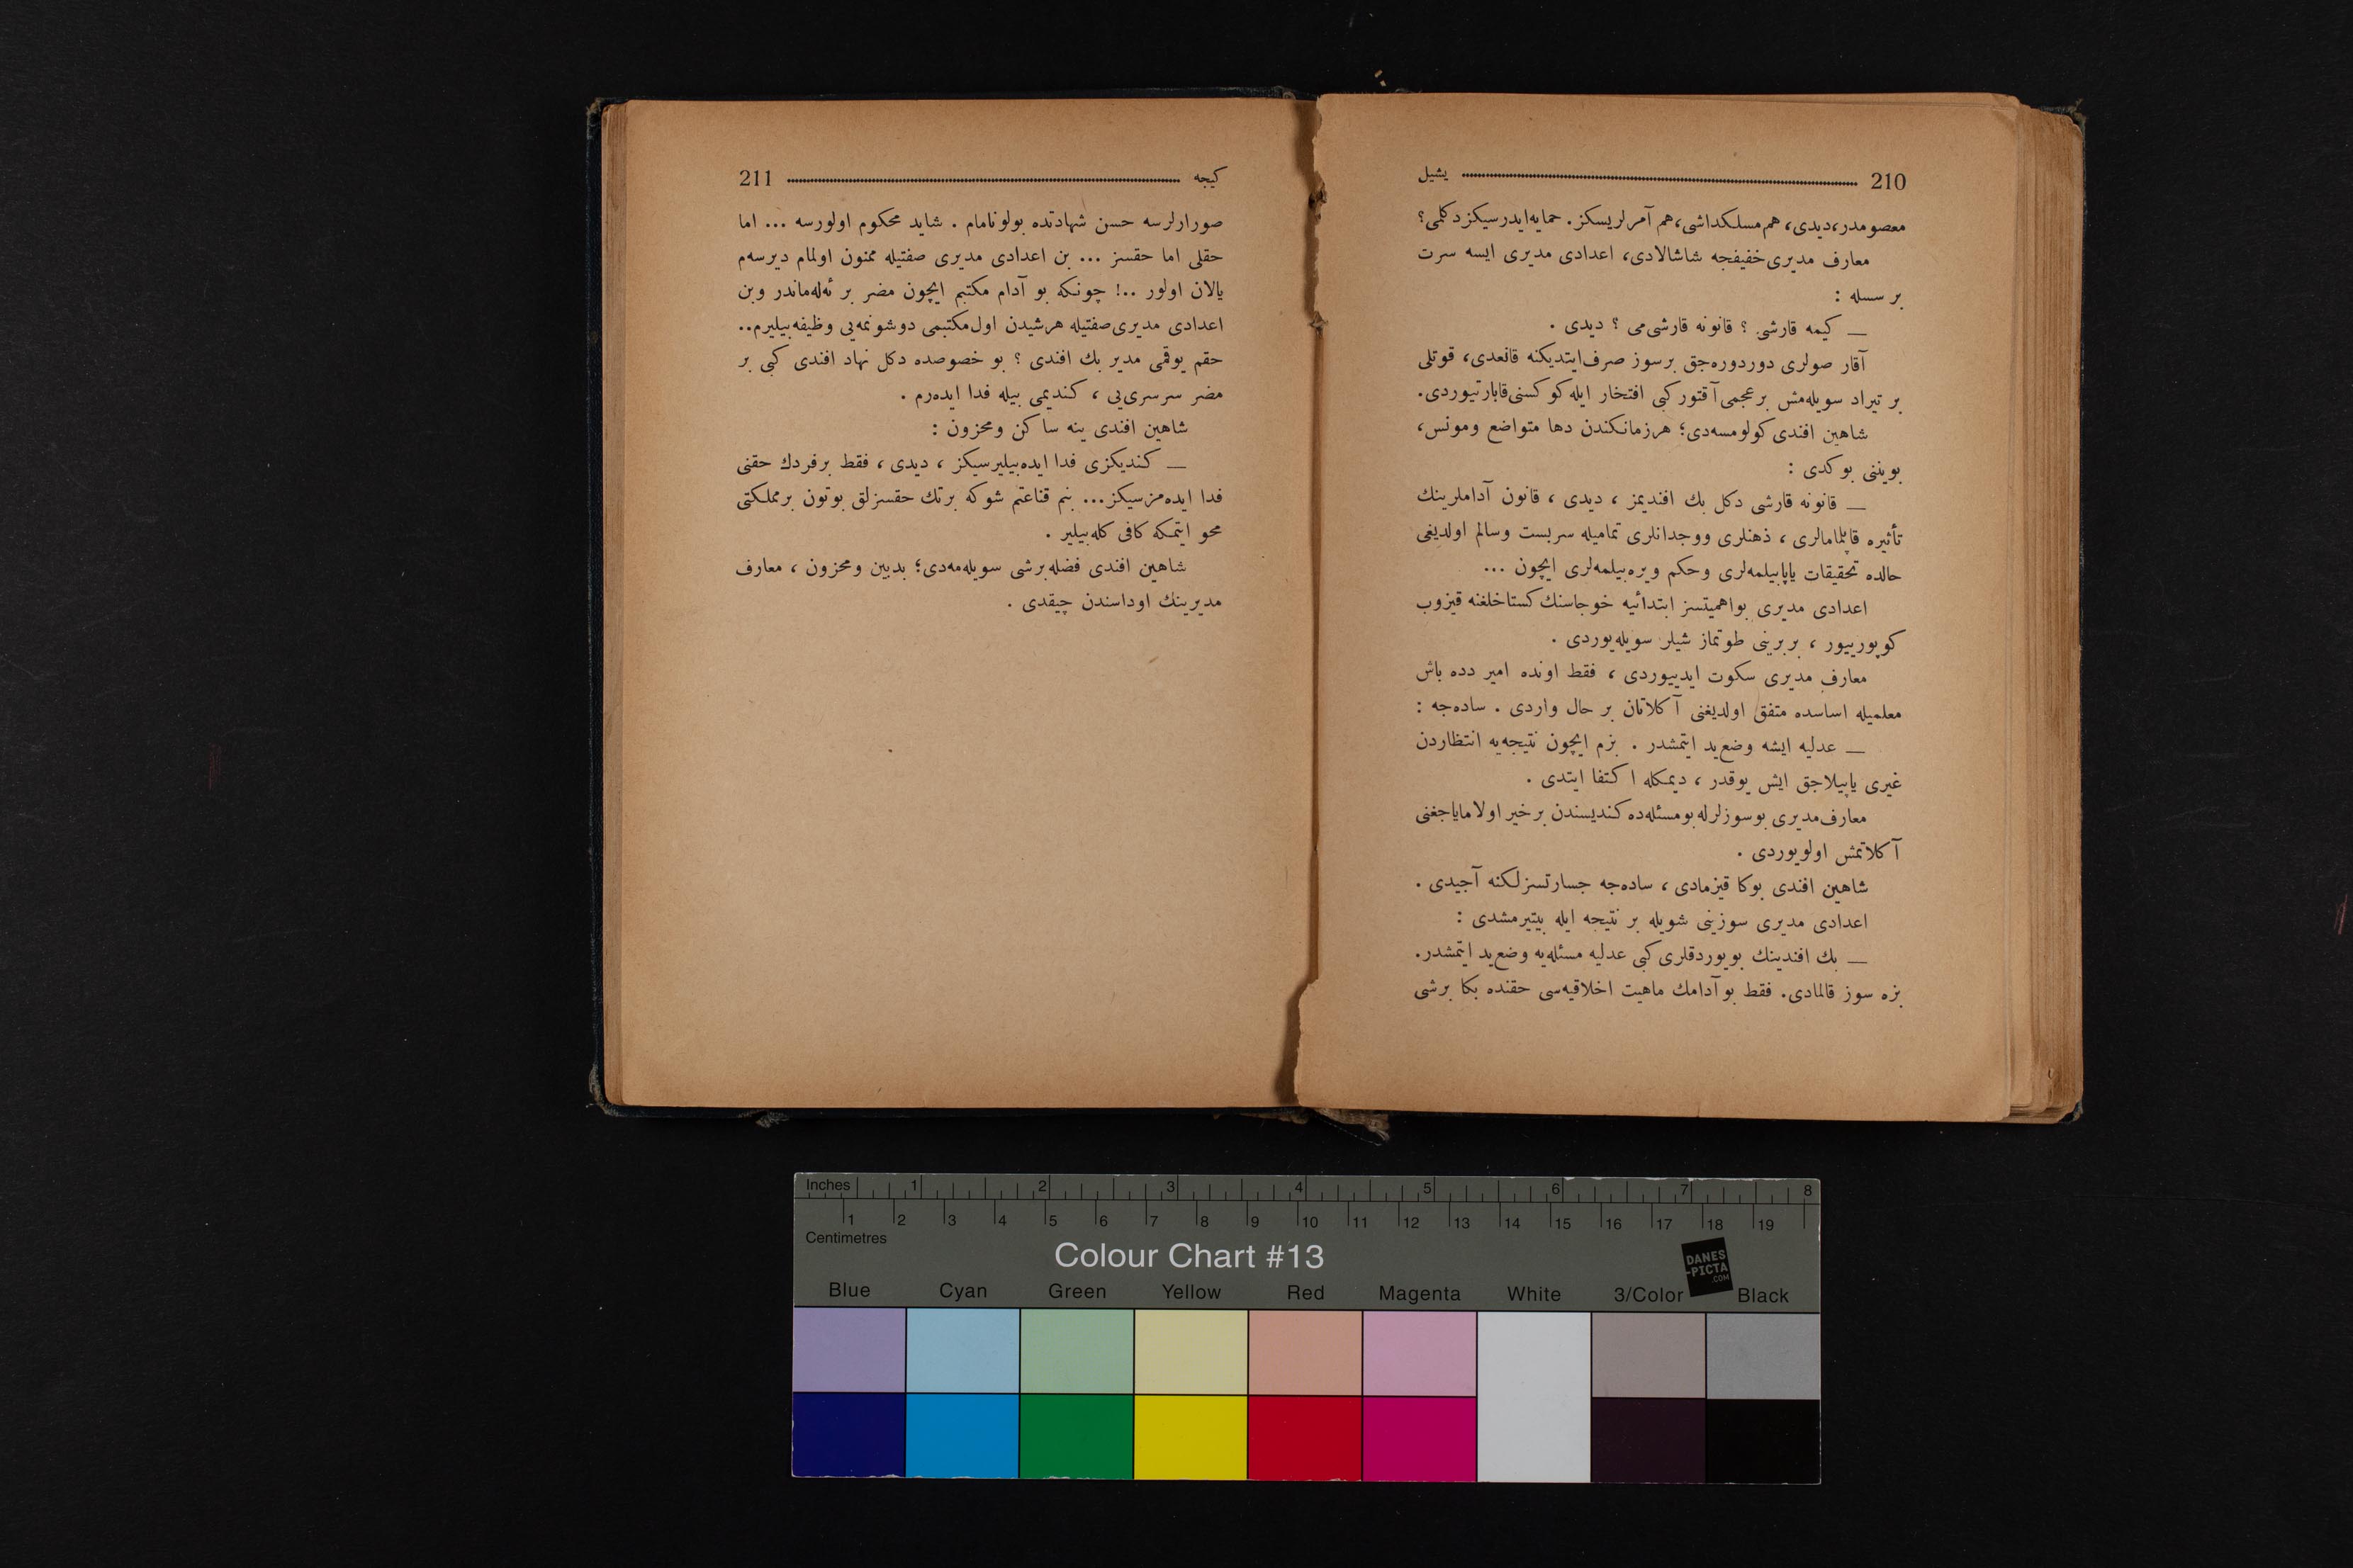 210 یشیل
معصومدر، دیدی، هم مسلكداشی، هم آمر لریسكز. حمایه ایدرسیكز دكلمی؟
معارف مدیری خفیفجه شاشالادی، اعدادی مدیری ایسه سرت
بر سسله :
— كیمه قارشی ؟ قانونه قارشی می ؟ دیدی .
آقار صولری دوردوره جق بر سوز صرف ایتدیكنه قانعدی، قوتلی
بر تیراد سویله مش بر عجمی آقتور كبی افتخار ایله كوكسنی قابارتیوردی.
شاهین افندی كولومسه دی؛ هر زمانكندن دها متواضع و مونس،
بوینی بوكدی :
— قانونه قارشی دكل بك افندیمز ، دیدی ، قانون آداملرینك
تأثیره قاپلمامالری ، ذهنلری و وجدانلری تمامیله سربست و سالم اولدیغی
حالده تحقیقات یاپابیلمه لری و حكم ویره بیلمه لری ایچون ...
اعدادی مدیری بو اهمیتسز ابتدائیه خوجاسنك كستاخلغنه قیزوب
كوپورییور ، بربرینی طوتماز شیلر سویله یوردی .
معارف مدیری سكوت ایدییوردی ، فقط اونده امیر دده باش
معلمیله اساسده متفق اولدیغنی آكلاتان بر حال واردی . ساده جه :
— عدلیه ایشه وضع ید ایتمشدر . بزم ایچون نتیجه یه انتظاردن
غیری یاپیلاجق ایش یوقدر ، دیمكله اكتفا ایتدی .
معارف مدیری بو سوزلرله بو مسئله ده كندیسندن بر خیر اولامایاجغنی
آكلاتمش اولویوردی .
شاهین افندی بوكا قیزمادی ، ساده جه جسارتسزلكنه آجیدی .
اعدادی مدیری سوزینی شویله بر نتیجه ایله بیتیرمشدی :
— بك افندینك بویوردقلری كبی عدلیه مسئله یه وضع ید ایتمشدر.
بزه سوز قالمادی. فقط بو آدامك ماهیت اخلاقیه سی حقنده بكا بر شی
كیجه 211
صورارلرسه حسن شهادتده بولونامام . شاید محكوم اولورسه ... اما
حقلی اما حقسز ... بن اعدادی مدیری صفتیله ممنون اولمام دیرسه م
یالان اولور ..! چونكه بو آدام مكتبم ایچون مضر بر ئه له ماندر و بن
اعدادی مدیری صفتیله هر شیدن اول مكتبمی دوشونمه یی وظیفه بیلیرم..
حقم یوقمی مدیر بك افندی ؟ بو خصوصده دكل نهاد افندی كبی بر
مضر سرسری یی ، كندیمی بیله فدا ایده رم .
شاهین افندی ینه ساكن و محزون :
— كندیكزی فدا ایده بیلیرسیكز ، دیدی ، فقط بر فردك حقنی
فدا ایده مزسیكز ... بنم قناعتم شو كه بر تك حقسزلق بوتون بر مملكتی
محو ایتمكه كافی كله بیلیر .
شاهین افندی فضله بر شی سویله مه دی؛ بدبین و محزون ، معارف
مدیرینك اوداسندن چیقدی .
Inches 1 2 3 4 5 6 7 8
1 2 3 4 5 6 7 8 9 10 11 12 13 14 15 16 17 18 19
Centimetres
Colour Chart #13
DANES
-PICTA
.COM
Blue Cyan Green Yellow Red Magenta White 3/Color Black